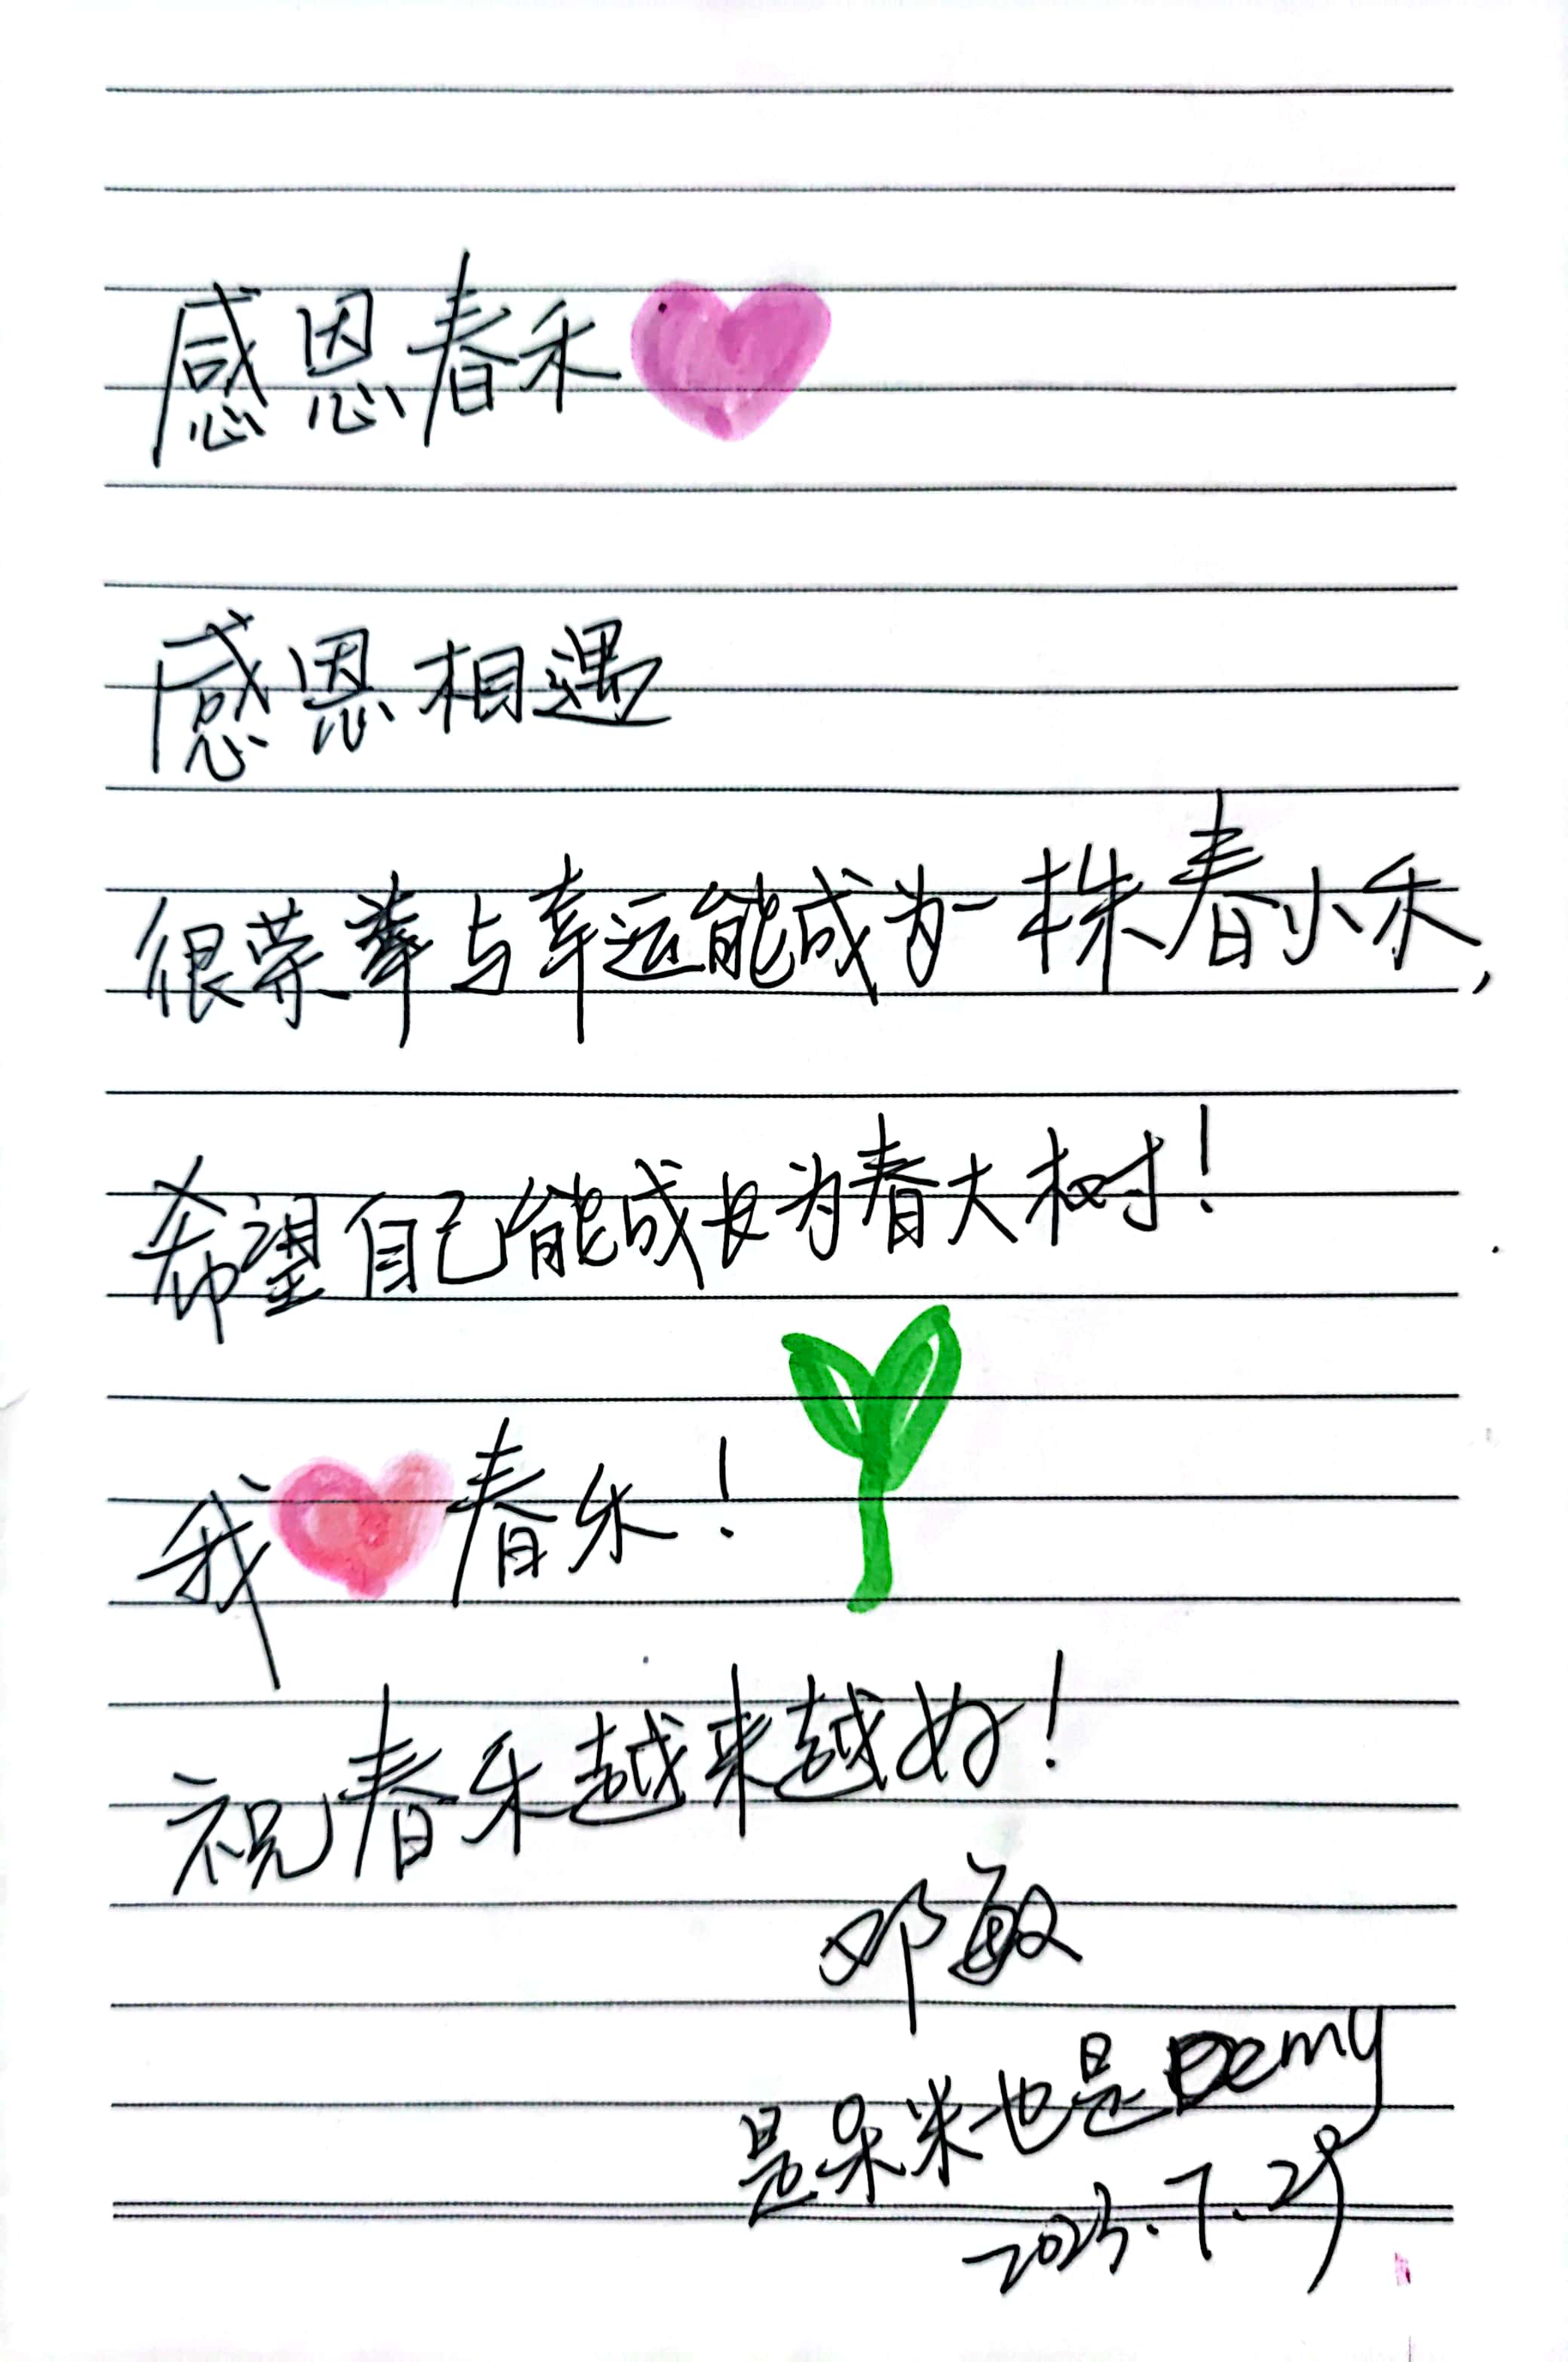 感恩春禾
感恩相遇
很荣幸与幸运能成为一株春小禾,
希望自己能成长为春大树!
我 春禾!
祝春禾越来越好!
邓敏
是呆米也是Demy
2023.7.29